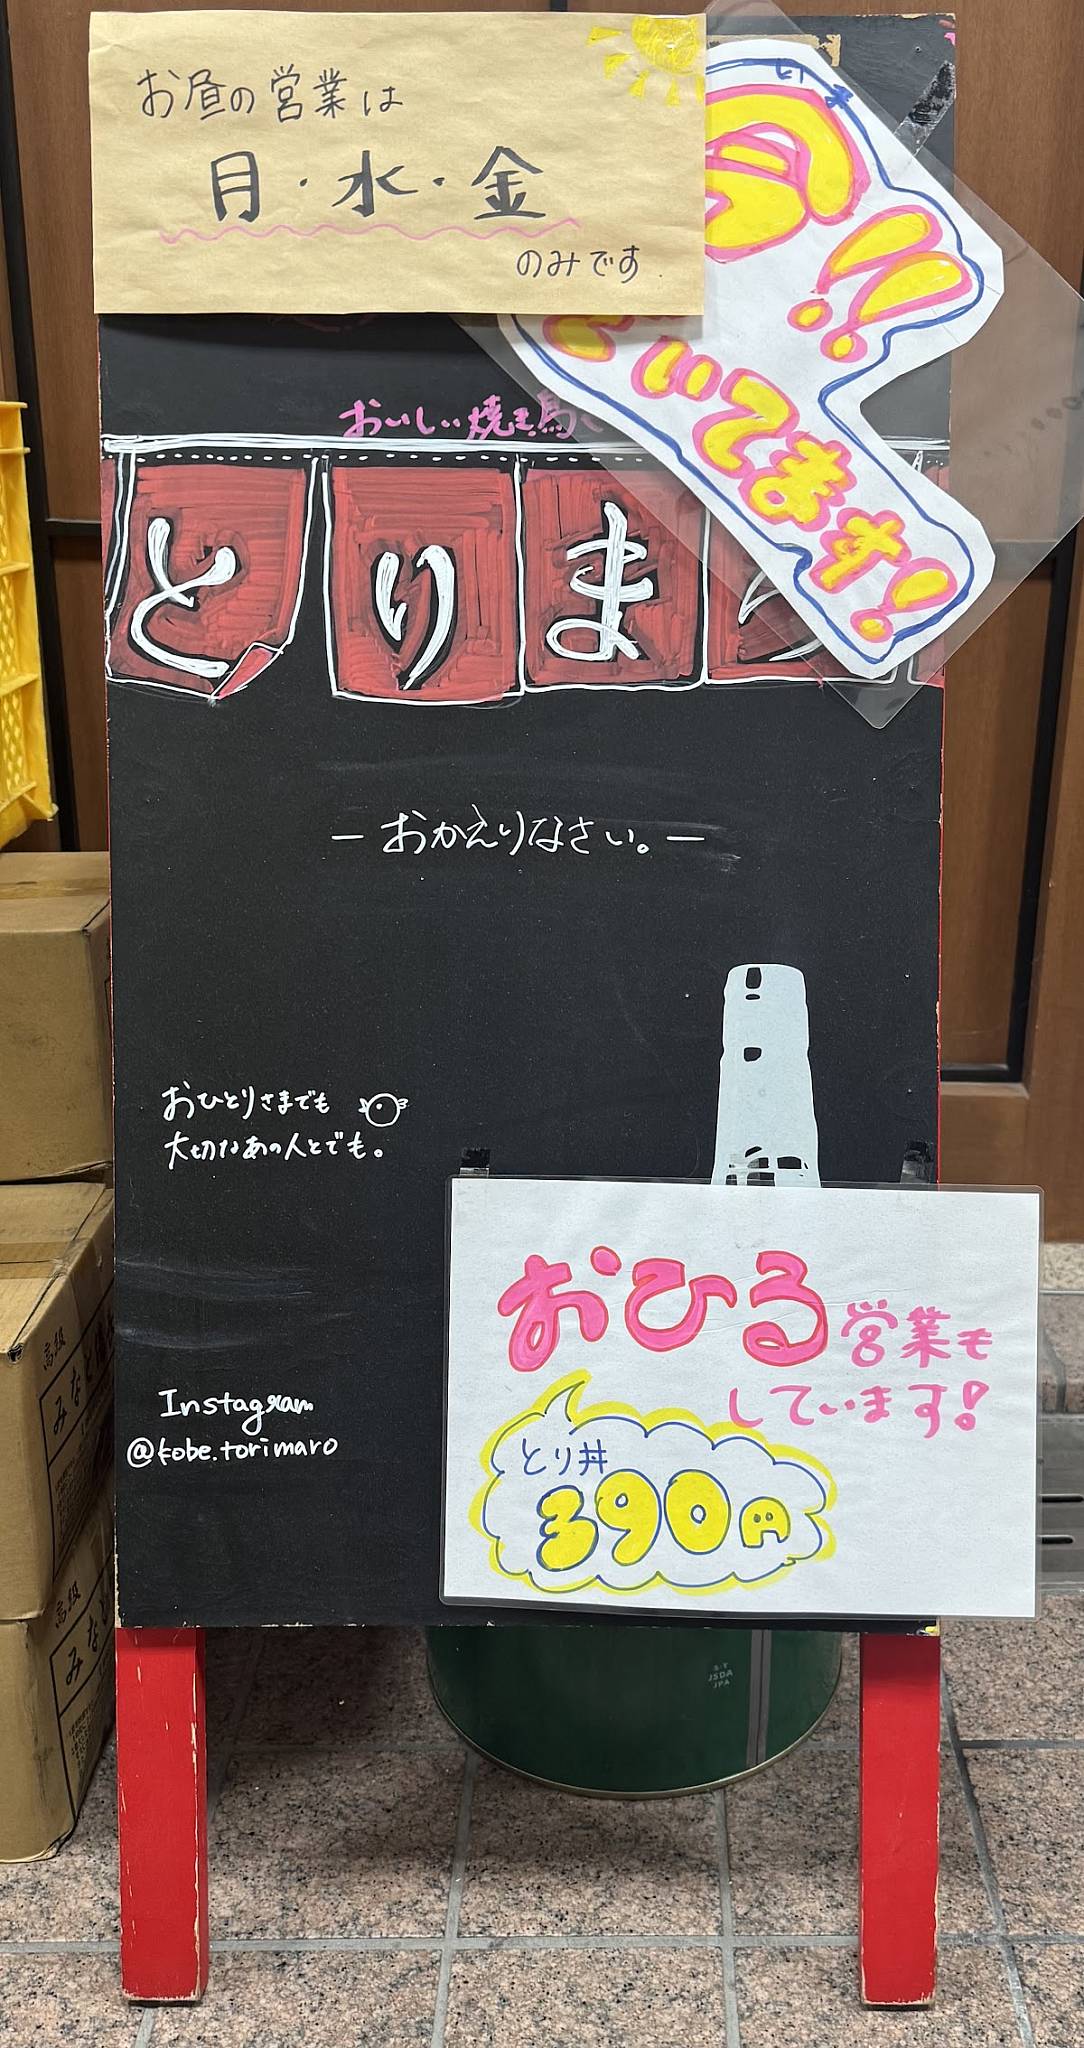 お昼の営業は
月・水・金
のみです.
今!!
いてます!
おいしい焼き鳥
とりまろ
—おかえりなさい。—
おひとりさまでも
大切なあの人とでも。
Instagram
@kobe.torimaro
おひる営業も
しています!
とり丼
390円
高級
みなと
高級
みなと
JSDA
JPA